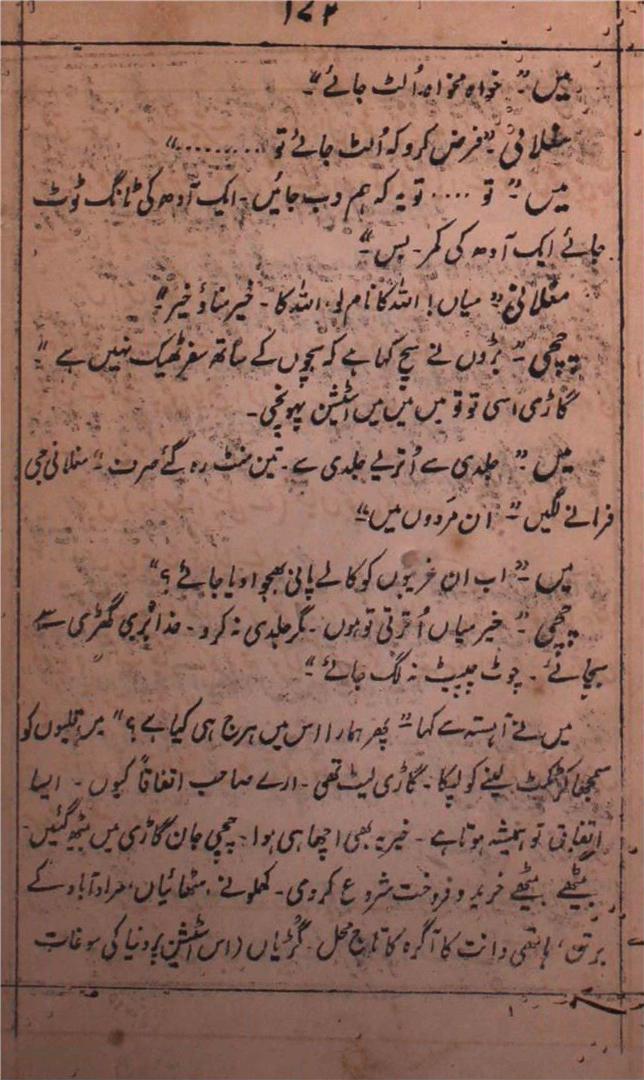 ۱۷۲
میں ”خواہ مخواہ اُلٹ جائے“۔
مغلانی ”فرض کرو کہ اُلٹ جائے تو ........“
میں ” تو .... تو یہ کہ ہم دب جائیں۔ ایک آدھ کی ٹانگ ٹوٹ
جائے ایک آدھ کی کمر۔ بس“
مغلانی ” میاں! اللہ کا نام لو، اللہ کا۔ خیر مناؤ خیر“
چچی ” بڑوں نے سچ کہا ہے کہ بچوں کے ساتھ سفر ٹھیک نہیں ہے “
گاڑی اسی تو تو میں میں میں اسٹیشن پہونچی۔
میں ” جلدی سے اُتریے جلدی سے۔ تین منٹ رہ گئے صرف “ مغلانی جی
فرمانے لگیں ” ان مَردوں میں“
میں ” اب ان غریبوں کو کالے پانی بھجوا دیا جائے ؟“
چچی ” خیر میاں اُترتی تو ہوں۔ مگر جلدی نہ کرو۔ خدا بُری گھڑی سے
بچائے۔ چوٹ چپیٹ نہ لگ جائے “
میں نے آہستہ سے کہا ” پھر ہمارا اس میں ہرج ہی کیا ہے ؟“ میں قلیوں کو
سمجھا کر ٹکٹ لینے کو لپکا۔ گاڑی لیٹ تھی۔ ارے صاحب اتفاقاً کیوں۔ ایسا
اتفاق تو ہمیشہ ہوتا ہے۔ خیر یہ بھی اچھا ہی ہوا۔ چچی جان گاڑی میں بیٹھ گئیں۔
بیٹھے بیٹھے خرید و فروخت شروع کر دی۔ کھلونے، مٹھائیاں، مراد آباد کے
برتن، ہاتھی دانت کا آگرہ کا تاج محل۔ گڑیاں (اس اسٹیشن پر دنیا کی سوغات